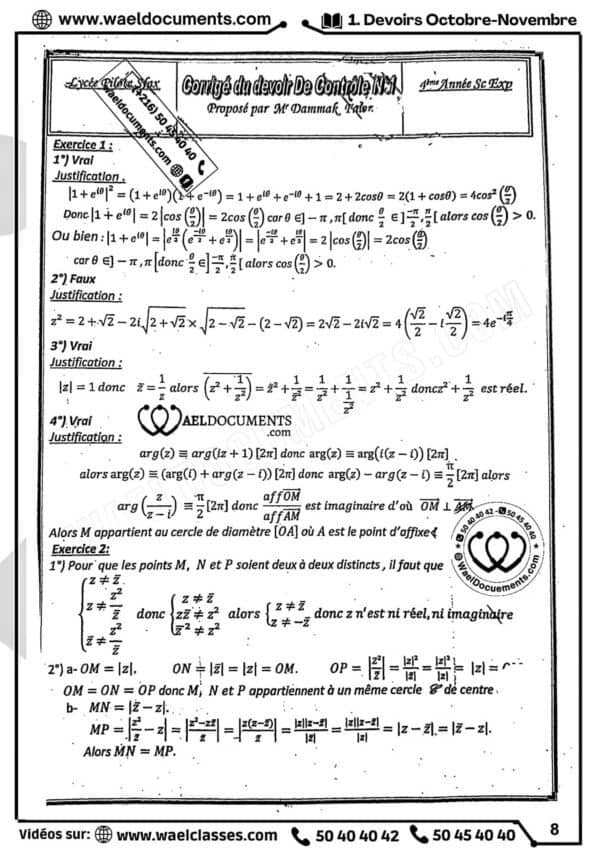 www.waeldocuments.com
1. Devoirs Octobre-Novembre
Lycée Pilote Sfax
Corrigé du devoir De Contrôle N:1
Proposé par Mr Dammak
4ème Année Sc Exp
(+216) 50 45 40 40
waeldocuments.com
Exercice 1 :
1°) Vrai
Justification .
|1 + e^{iθ}|² = (1 + e^{iθ})(1 + e^{-iθ}) = 1 + e^{iθ} + e^{-iθ} + 1 = 2 + 2cosθ = 2(1 + cosθ) = 4cos²(θ/2)
Donc |1 + e^{iθ}| = 2|cos(θ/2)| = 2cos(θ/2) car θ ∈] − π , π[ donc θ/2 ∈]−π/2, π/2[ alors cos(θ/2) > 0.
Ou bien : |1 + e^{iθ}| = |e^{iθ/2}(e^{-iθ/2} + e^{iθ/2})| = |e^{-iθ/2} + e^{iθ/2}| = 2|cos(θ/2)| = 2cos(θ/2)
car θ ∈] − π , π[donc θ/2 ∈]−π/2, π/2[ alors cos(θ/2) > 0.
2°) Faux
Justification :
z² = 2 + √2 − 2i√(2 + √2) × √(2 − √2) − (2 − √2) = 2√2 − 2i√2 = 4(√2/2 − i√2/2) = 4e^{-iπ/4}
3°) Vrai
Justification :
|z| = 1 donc z̄ = 1/z alors \overline{(z² + 1/z²)} = z̄² + 1/z̄² = 1/z² + 1/(1/z²) = z² + 1/z² doncz² + 1/z² est réel.
4°) Vrai
WAELDOCUMENTS
.com
Justification :
arg(z) ≡ arg(iz + 1) [2π] donc arg(z) ≡ arg(i(z − i)) [2π]
alors arg(z) ≡ (arg(i) + arg(z − i)) [2π] donc arg(z) − arg(z − i) ≡ π/2 [2π] alors
arg(z/(z − i)) ≡ π/2 [2π] donc affOM/affAM est imaginaire d'où OM ⊥ AM.
Alors M appartient au cercle de diamètre [OA] où A est le point d'affixe i
Exercice 2:
1°) Pour que les points M, N et P soient deux à deux distincts , il faut que
{ z ≠ z̄ ; z ≠ z²/z̄ ; z̄ ≠ z²/z̄ donc { z ≠ z̄ ; zz̄ ≠ z² ; z̄² ≠ z² alors { z ≠ z̄ ; z ≠ −z̄ donc z n'est ni réel, ni imaginaire
50 40 40 42 - 50 45 40 40
WaelDocuements.com
2°) a- OM = |z|. ON = |z̄| = |z| = OM. OP = |z²/z̄| = |z|²/|z̄| = |z|²/|z| = |z| =
OM = ON = OP donc M, N et P appartiennent à un même cercle de centre
b- MN = |z̄ − z|.
MP = |z²/z̄ − z| = |(z²−zz̄)/z̄| = |z(z−z̄)/z̄| = |z||z−z̄|/|z̄| = |z||z−z̄|/|z| = |z − z̄| = |z̄ − z|.
Alors MN = MP.
8
Vidéos sur: www.waelclasses.com 50 40 40 42 50 45 40 40